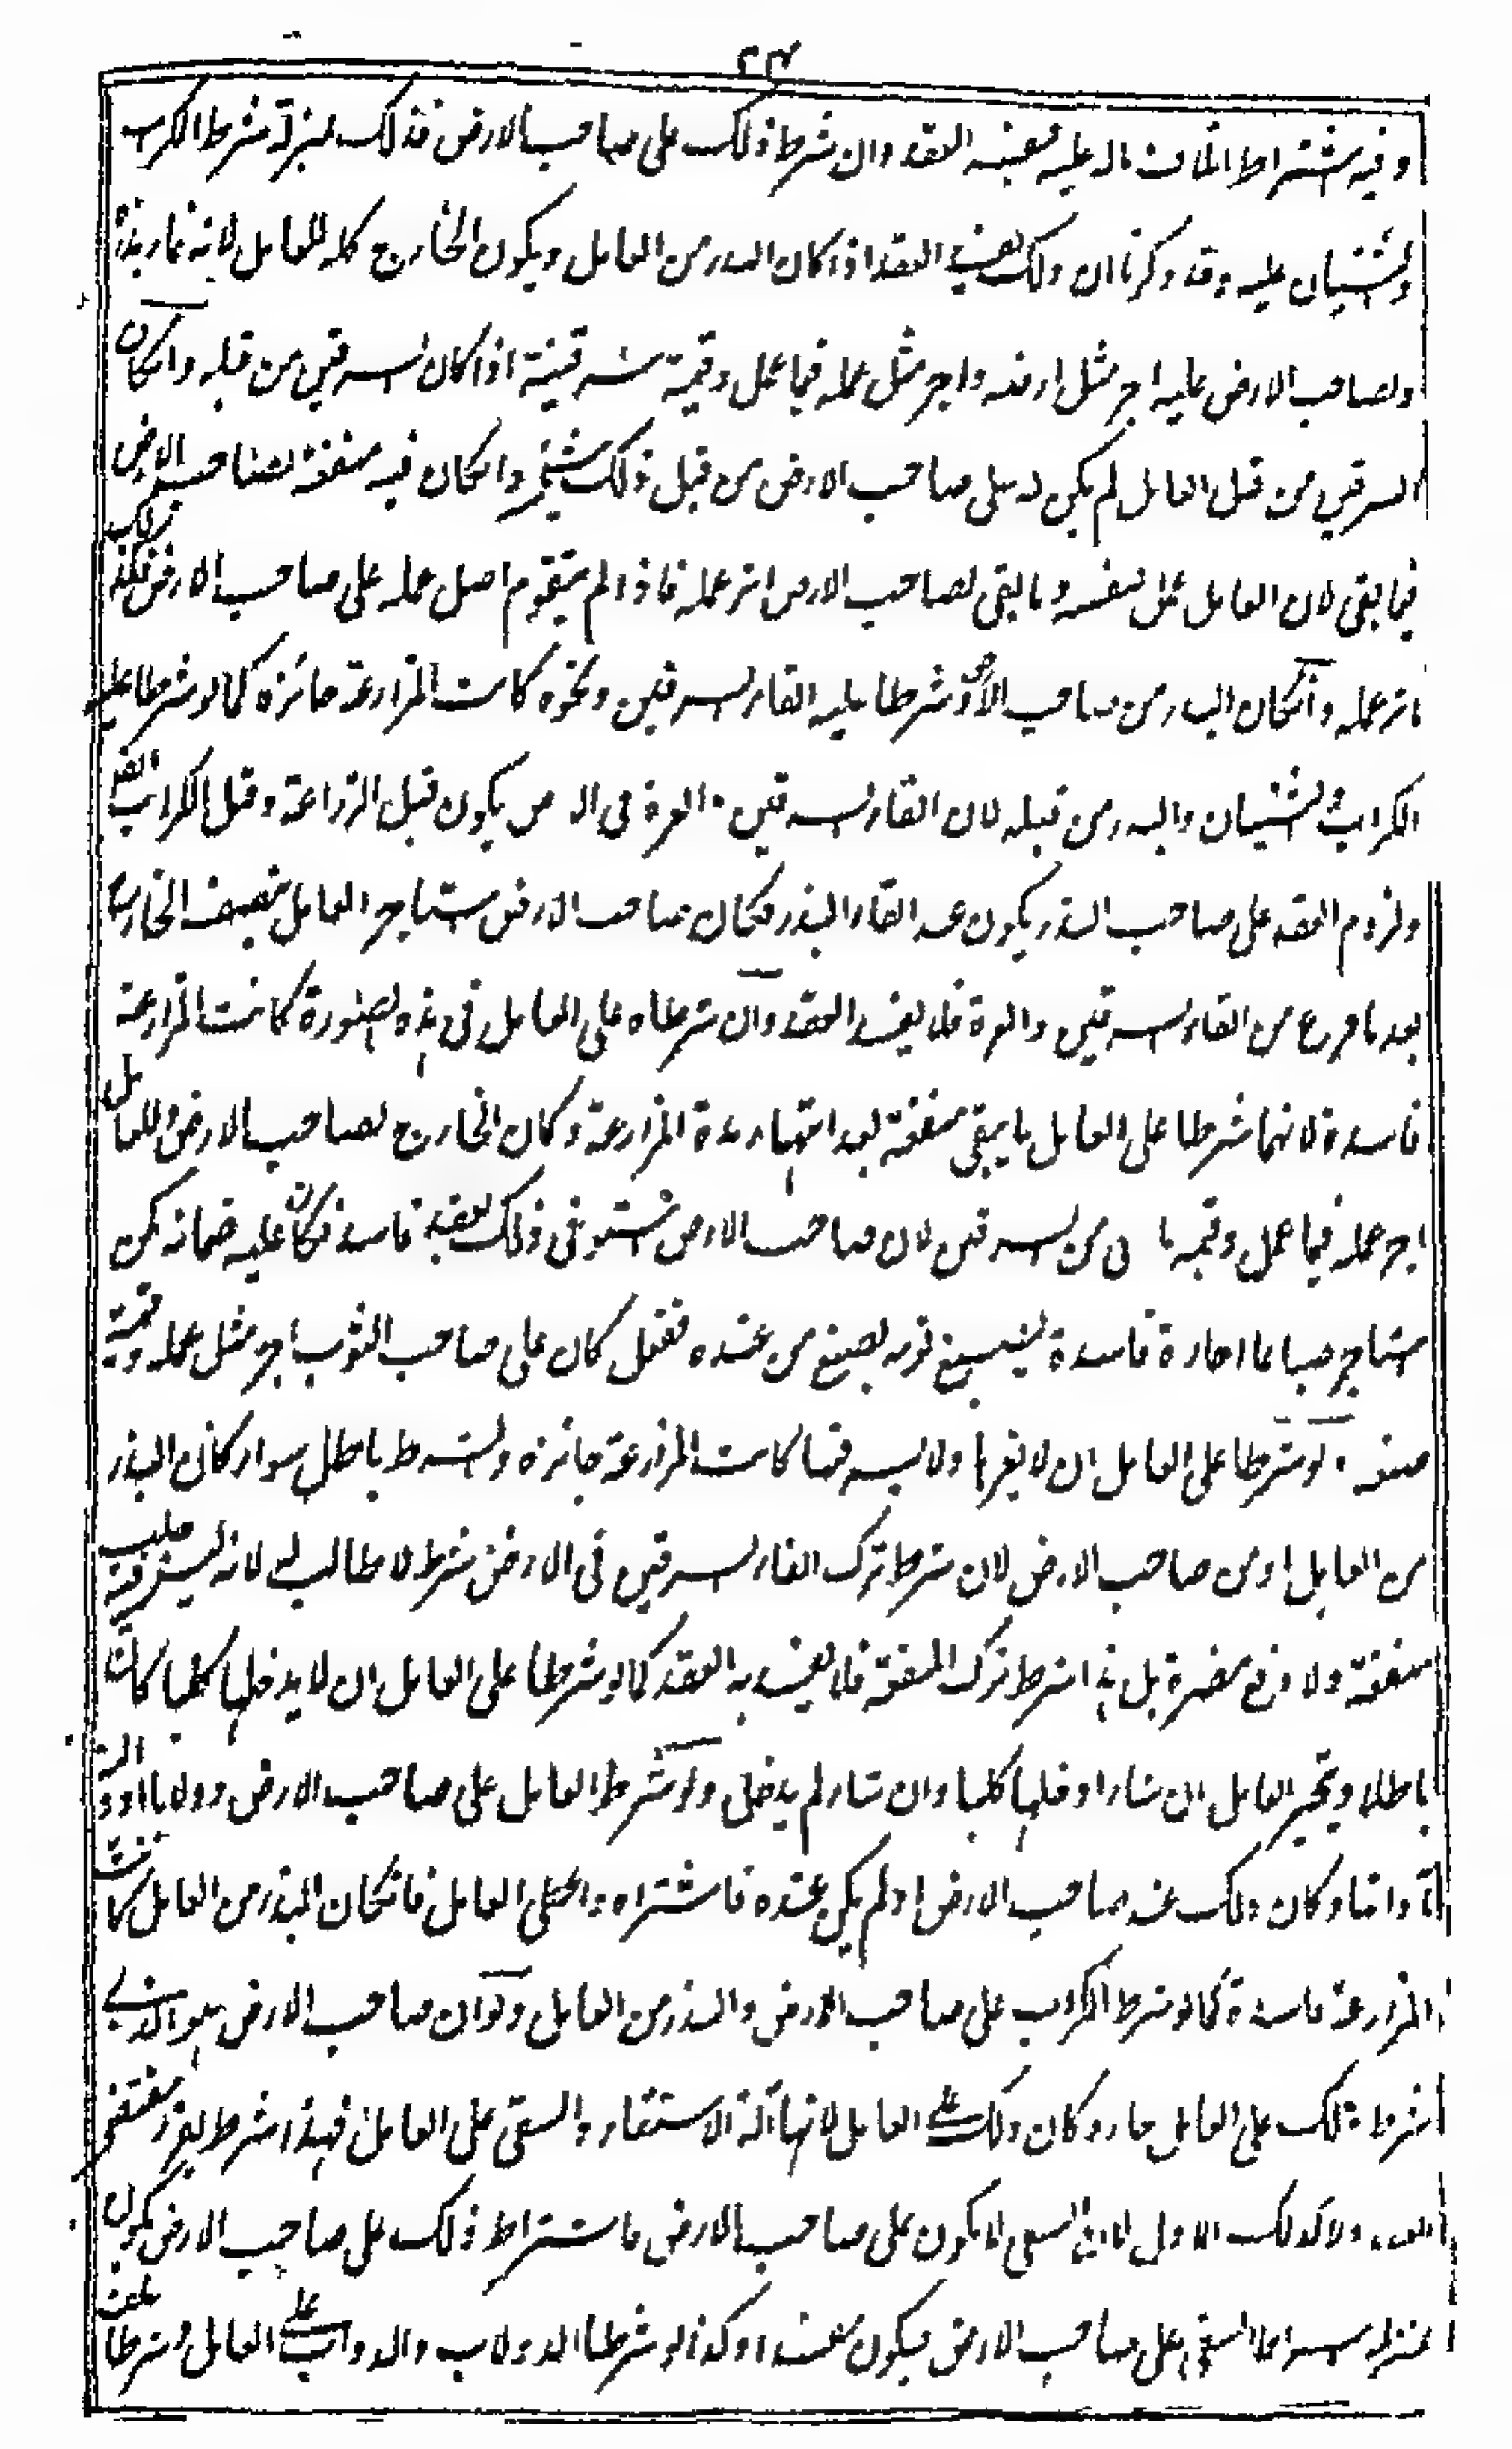 ٢٣
وفيه اشتراط اتلاف ماله عليه فيفسد به العقد وان شرط ذلك على صاحب الارض فذلك بمنزلة شرط الكراب
والثنيان عليه وقد ذكرنا ان ذلك يفسد العقد اذا كان البذر من العامل ويكون الخارج كله للعامل لانه نماء بذره
ولصاحب الارض عليه اجر مثل ارضه واجر مثل عمله فيما عمل وقيمة سرقينه اذا كان السرقين من قبله وان كان
السرقين من قبل العامل لم يكن له على صاحب الارض من قبل ذلك شيء وان كان فيه منفعة لصاحب الارض
فيما بقى لان العامل عمل لنفسه وما بقى لصاحب الارض اثر عمله فاذا لم يتقوم اصل عمله على صاحب الارض فكذلك
اثر عمله وان كان البذر من صاحب الارض وشرطا عليه القاء السرقين ونحوه كانت المزارعة جائزة كما لو شرطا عليه
الكراب والثنيان والبذر من قبله لان القاء السرقين والعرة فى الارض يكون قبل الزراعة وقبل الكراب ايضا
ولزوم العقد على صاحب البذر يكون عند القاء البذر فكان صاحب الارض استاجر العامل بنصف الخارج
بعد ما فرغ من القاء السرقين والعرة فلا يفسد العقد وان شرطاه على العامل فى هذه الصورة كانت المزارعة
فاسدة لانهما شرطا على العامل ما يبقى منفعته بعد انتهاء مدة المزارعة وكان الخارج لصاحب الارض وللعامل
اجر عمله فيما عمل وقيمة ما من السرقين لان صاحب الارض استوفى ذلك بعقد فاسد فكان عليه ضمانه كمن
استاجر صباغا اجارة فاسدة ليصبغ ثوبه بصبغ من عنده ففعل كان على صاحب الثوب اجر مثل عمله وقيمة
صبغه ولو شرطا على العامل ان لا يعرها ولا يسرقنها كانت المزارعة جائزة والشرط باطل سواء كان البذر
من العامل او من صاحب الارض لان شرط ترك القاء السرقين فى الارض شرط لا طالب له لانه ليس فيه جلب
منفعة ولا دفع مضرة بل هذا شرط ترك المنفعة فلا يفسد به العقد كما لو شرطا على العامل ان لا يدخلها كلبا كان
باطلا ويخير العامل ان شاء ادخلها كلبا وان شاء لم يدخل ولو شرط العامل على صاحب الارض دولابا او
واقتا وكان ذلك عند صاحب الارض او لم يكن عنده فاشتراه واعطى العامل فان كان البذر من العامل كانت
المزارعة فاسدة كما لو شرط الكراب على صاحب الارض والبذر من العامل ولو ان صاحب الارض هو الذى
شرط ذلك على العامل جاز وكان ذلك على العامل لانها آلة الاستقاء والسقى على العامل فهذا شرط يقرر مقتضى
العقد ولا كذلك الاول لان السقى لا يكون على صاحب الارض فاشتراط ذلك على صاحب الارض يكون
بمنزلة اشتراط السقى على صاحب الارض فيكون مفسدا وكذا لو شرطا الدولاب والدواب على العامل وشرطا علف